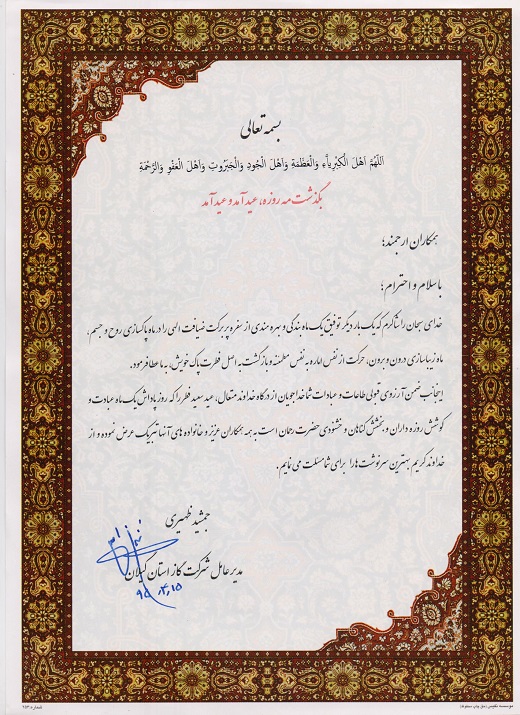 بسمه تعالی
اللّهُمَّ اَهْلَ الْکِبْرِیاءِ وَالْعَظَمَةِ وَاَهْلَ الْجُودِ وَالْجَبَرُوتِ وَاَهْلَ الْعَفْوِ وَالرَّحْمَةِ
بگذشت مه روزه، عید آمد و عید آمد
همکاران ارجمند؛
با سلام و احترام؛
خدای سبحان را شاکرم که یک بار دیگر توفیق یک ماه بندگی و بهره مندی از سفره پر برکت ضیافت الهی را در ماه پاکسازی روح و جسم،
ماه زیباسازی درون و برون، حرکت از نفس اماره به نفس مطمئنه و بازگشت به اصل فطرت پاک خویش، به ما عطا فرمود.
اینجانب ضمن آرزوی قبولی طاعات و عبادات شما خداجویان از درگاه خداوند متعال، عید سعید فطر را که روز پاداش یک ماه عبادت و
کوشش روزه داران و بخشش گناهان و خشنودی حضرت رحمان است به همه همکاران عزیز و خانواده های آنها تبریک عرض نموده و از
خداوند کریم بهترین سرنوشت ها را برای شما مسئلت می نمایم.
جمشید ظهیری
مدیر عامل شرکت گاز استان گیلان
۹۵.۴.۱۵